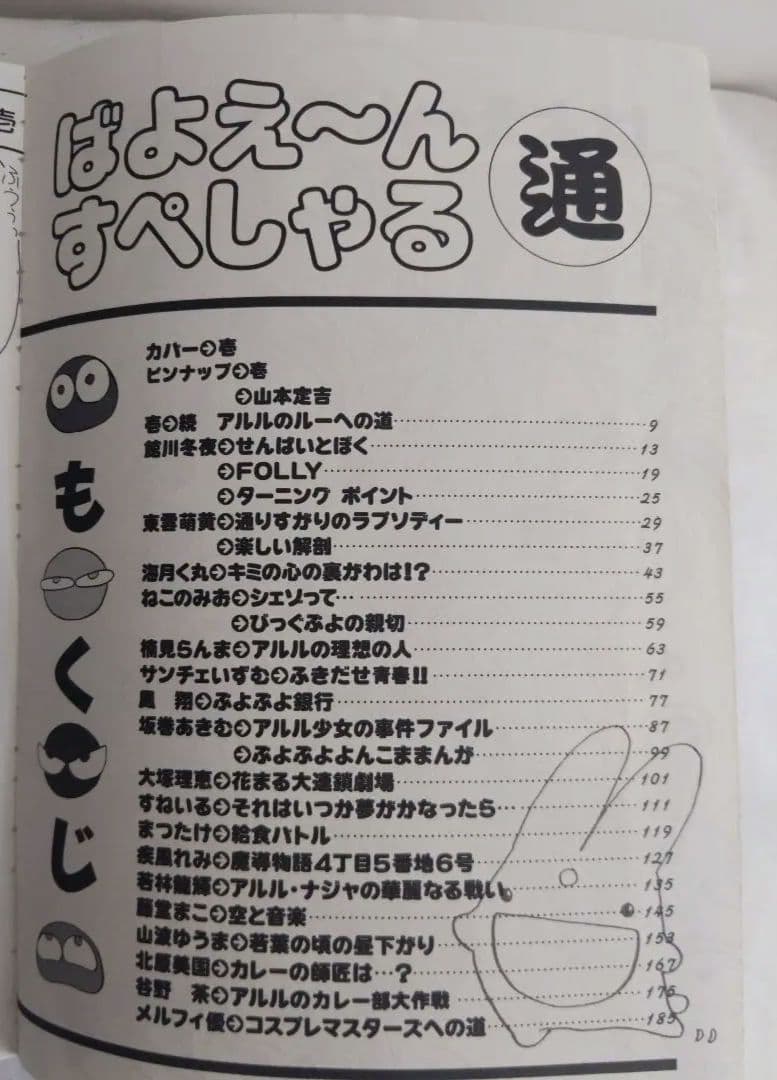 ばよえ〜ん
すぺしゃる
通
もくじ
カバー➲壱
ピンナップ➲壱
➲山本定吉
壱➲続 アルルのルーへの道……9
館川冬夜➲せんぱいとぼく……13
➲FOLLY……19
➲ターニング ポイント……25
東雲萌黄➲通りすがりのラプソディー……29
➲楽しい解剖……37
海月く丸➲キミの心の裏がわは!?……43
ねこのみお➲シェゾって………55
➲びっぐぷよの親切……59
楠見らんま➲アルルの理想の人……63
サンチェいずむ➲ふきだせ青春!!……71
翔➲ぷよぷよ銀行……77
坂巻あきむ➲アルル少女の事件ファイル……87
➲ぷよぷよよんこままんが……99
大塚理恵➲花まる大連鎖劇場……101
すねいる➲それはいつか夢がかなったら………111
まつたけ➲給食バトル……119
疾風れみ➲魔導物語4丁目5番地6号……127
若林龍輝➲アルル・ナジャの華麗なる戦い……135
藤堂まこ➲空と音楽……145
山波ゆうま➲若葉の頃の昼下がり……153
北原美国➲カレーの師匠は…?……167
谷野 茶➲アルルのカレー部大作戦……175
メルフィ優➲コスプレマスターズへの道……185
DD